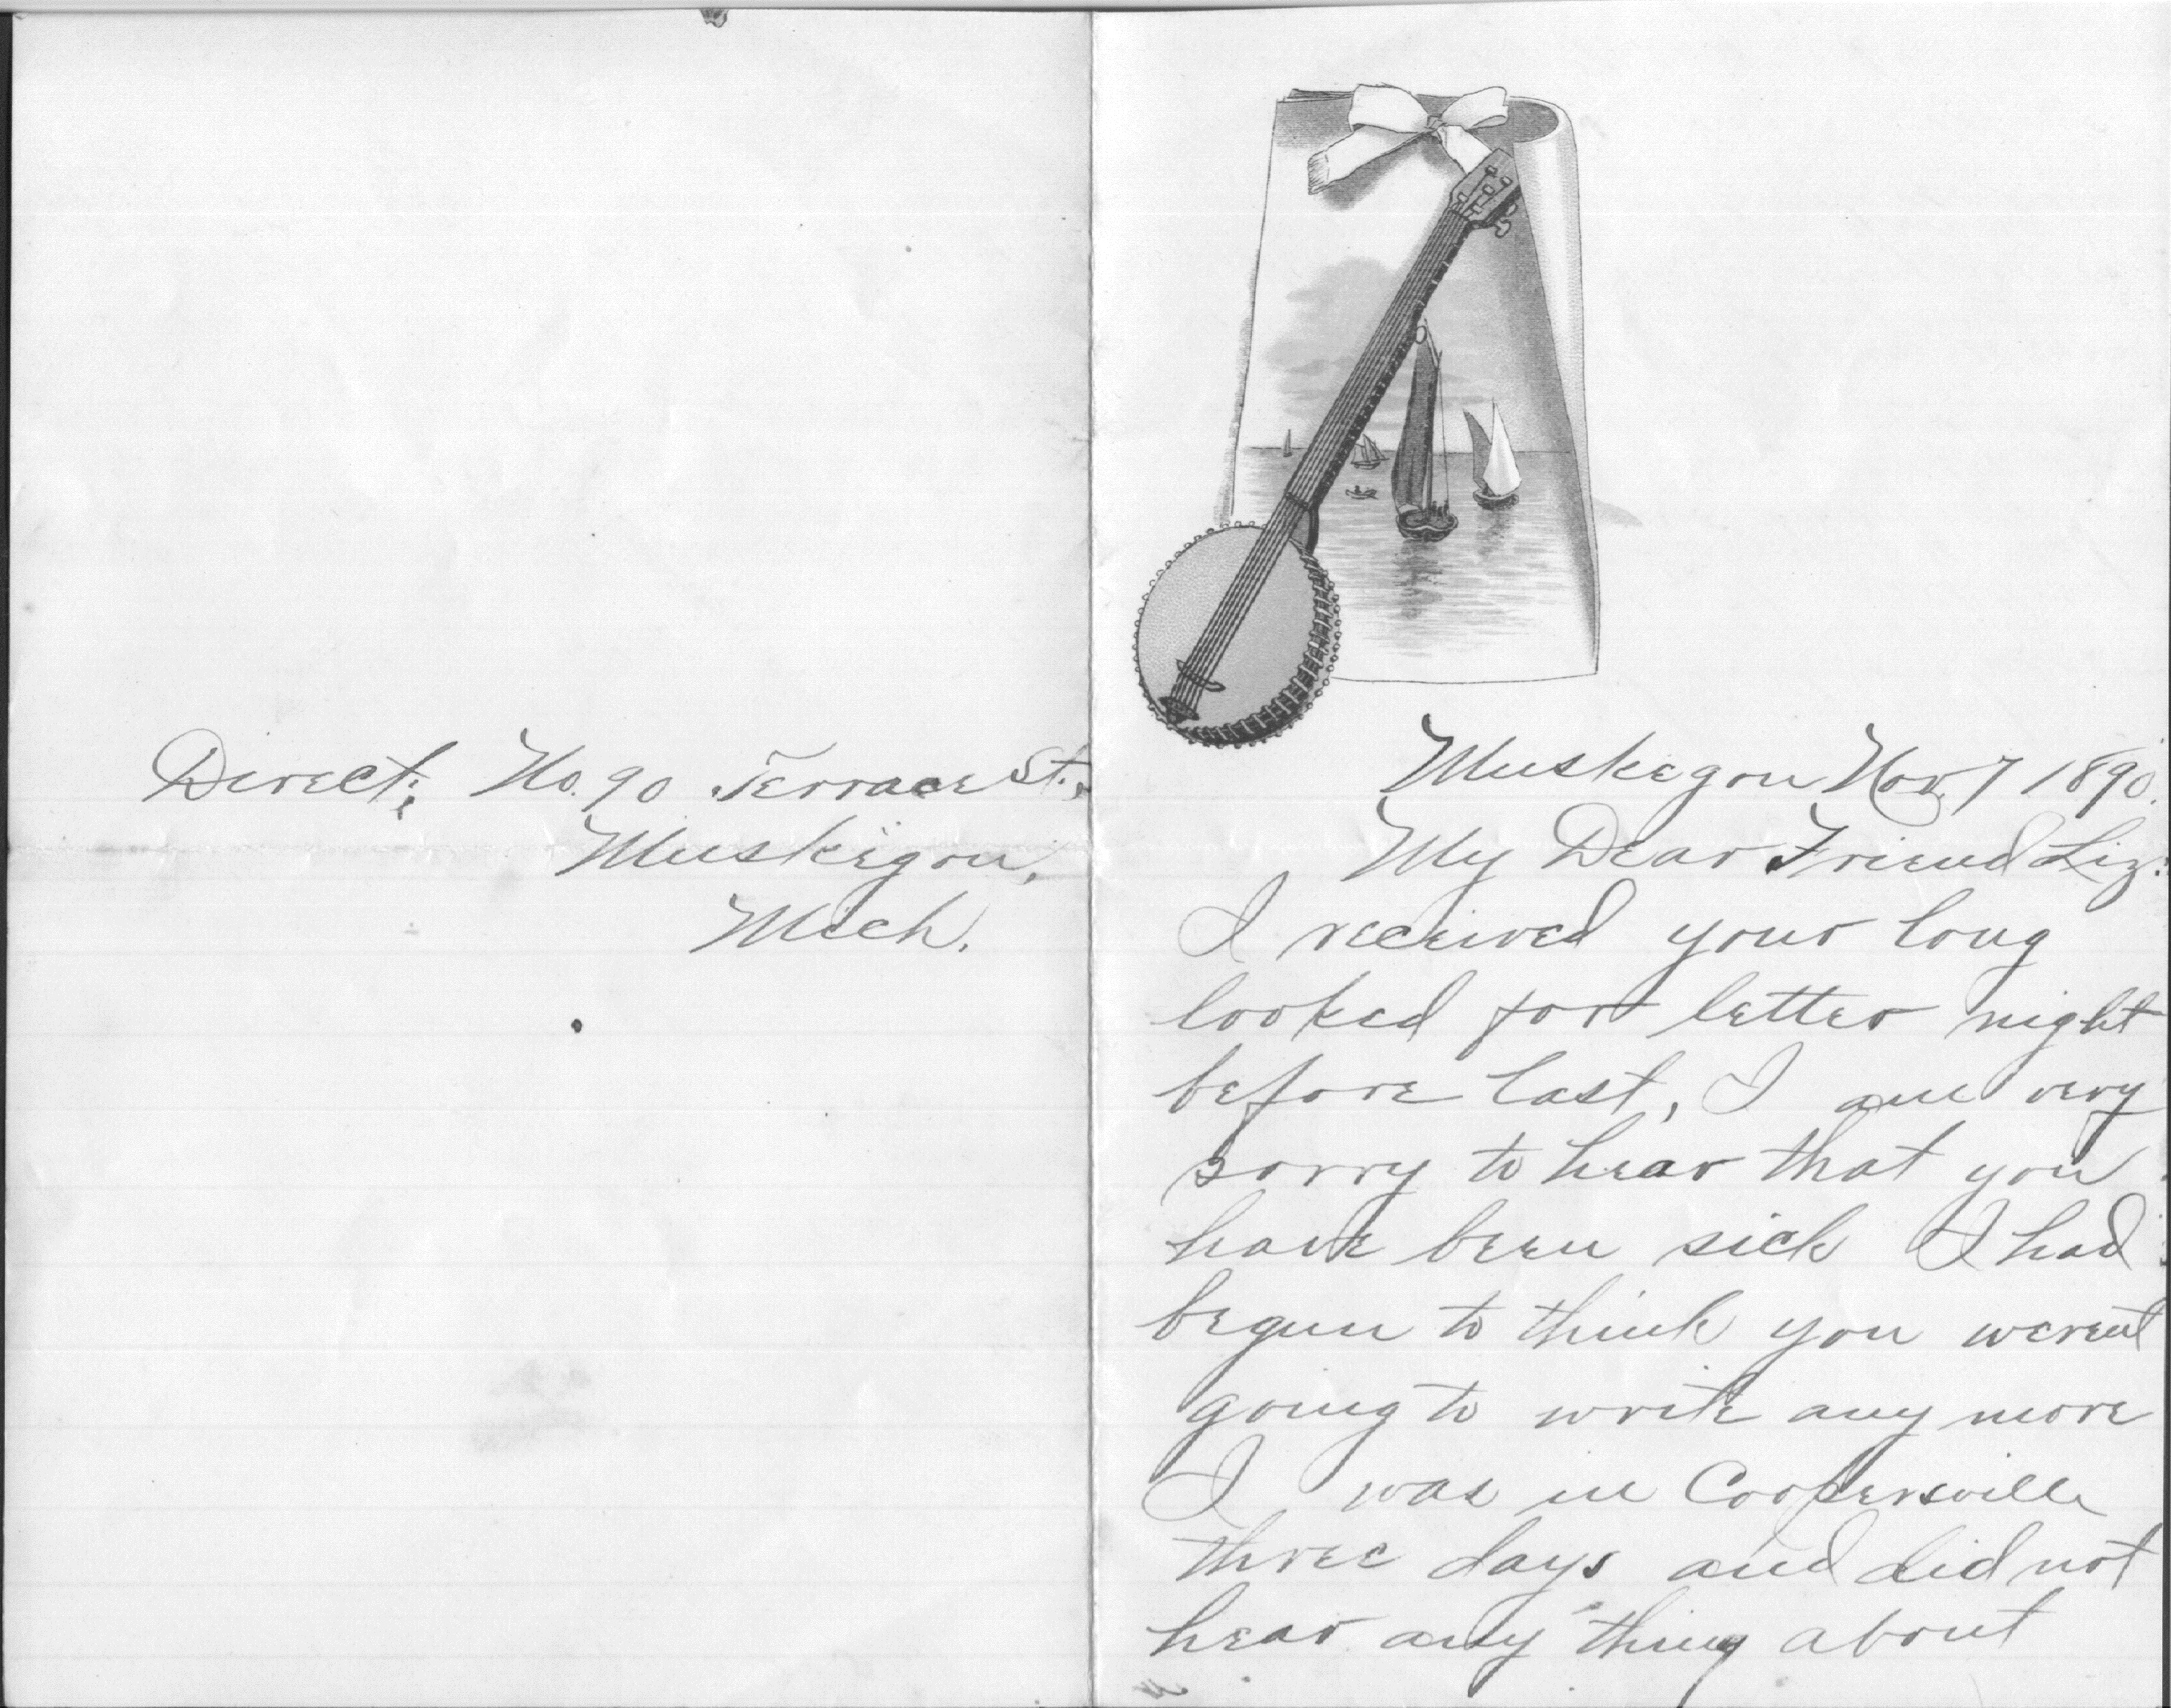 Direct; No. 90 Terrace St.,
Muskegon,
Mich.
Muskegon Nov. 7 1890.
My Dear Friend Liz:
I received your long
looked for letter night
before last, I am very
sorry to hear that you
have been sick I had
begun to think you werent
going to write any more
I was in Coopersville
three days and did not
hear any thing about